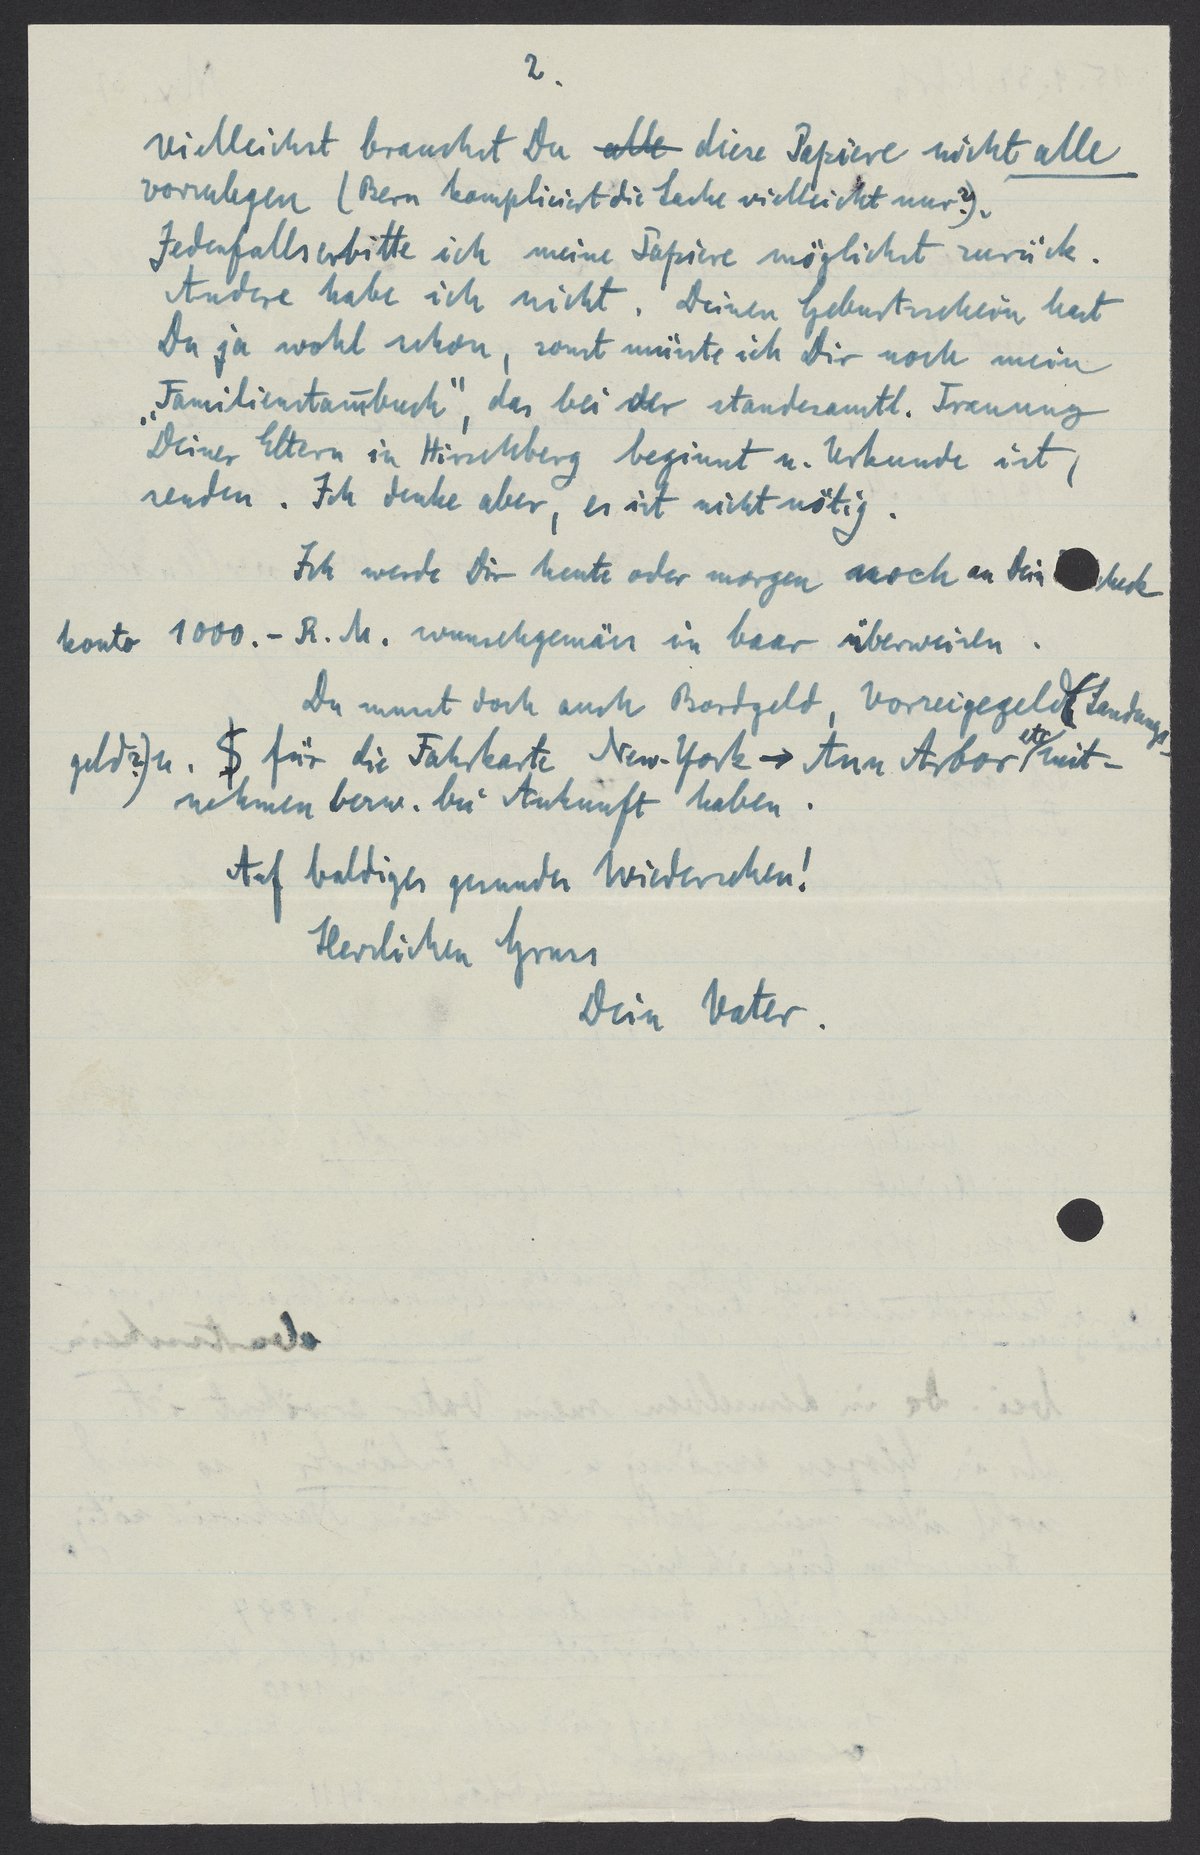 2.
vielleicht brauchst Du alle diese Papiere nicht alle
vorzulegen (Bern kompliciert die Sache vielleicht nur?).
Jedenfalls erbitte ich meine Papiere möglichst zurück.
Andere habe ich nicht. Deinen Geburtsschein hast
Du ja wohl schon, sonst müsste ich Dir noch mein
„Familienstam̄buch", das bei der standesamtl. Trauung
Deiner Eltern in Hirschberg beginnt u. Urkunde ist,
senden. Ich denke aber, es ist nicht nötig.
Ich werde Dir heute oder morgen noch an Dein check
konto 1000.- R.M. wunschgemäss in baar überweisen.
Du musst doch auch Bordgeld, Vorzeigegeld (Landungs-
geld?) u. $ für die Fahrkarte New-York → Ann Arbor etc mit-
nehmen bezw. bei Ankunft haben.
Auf baldiges gesundes Wiedersehen!
Herzlichen Gruss
Dein Vater.